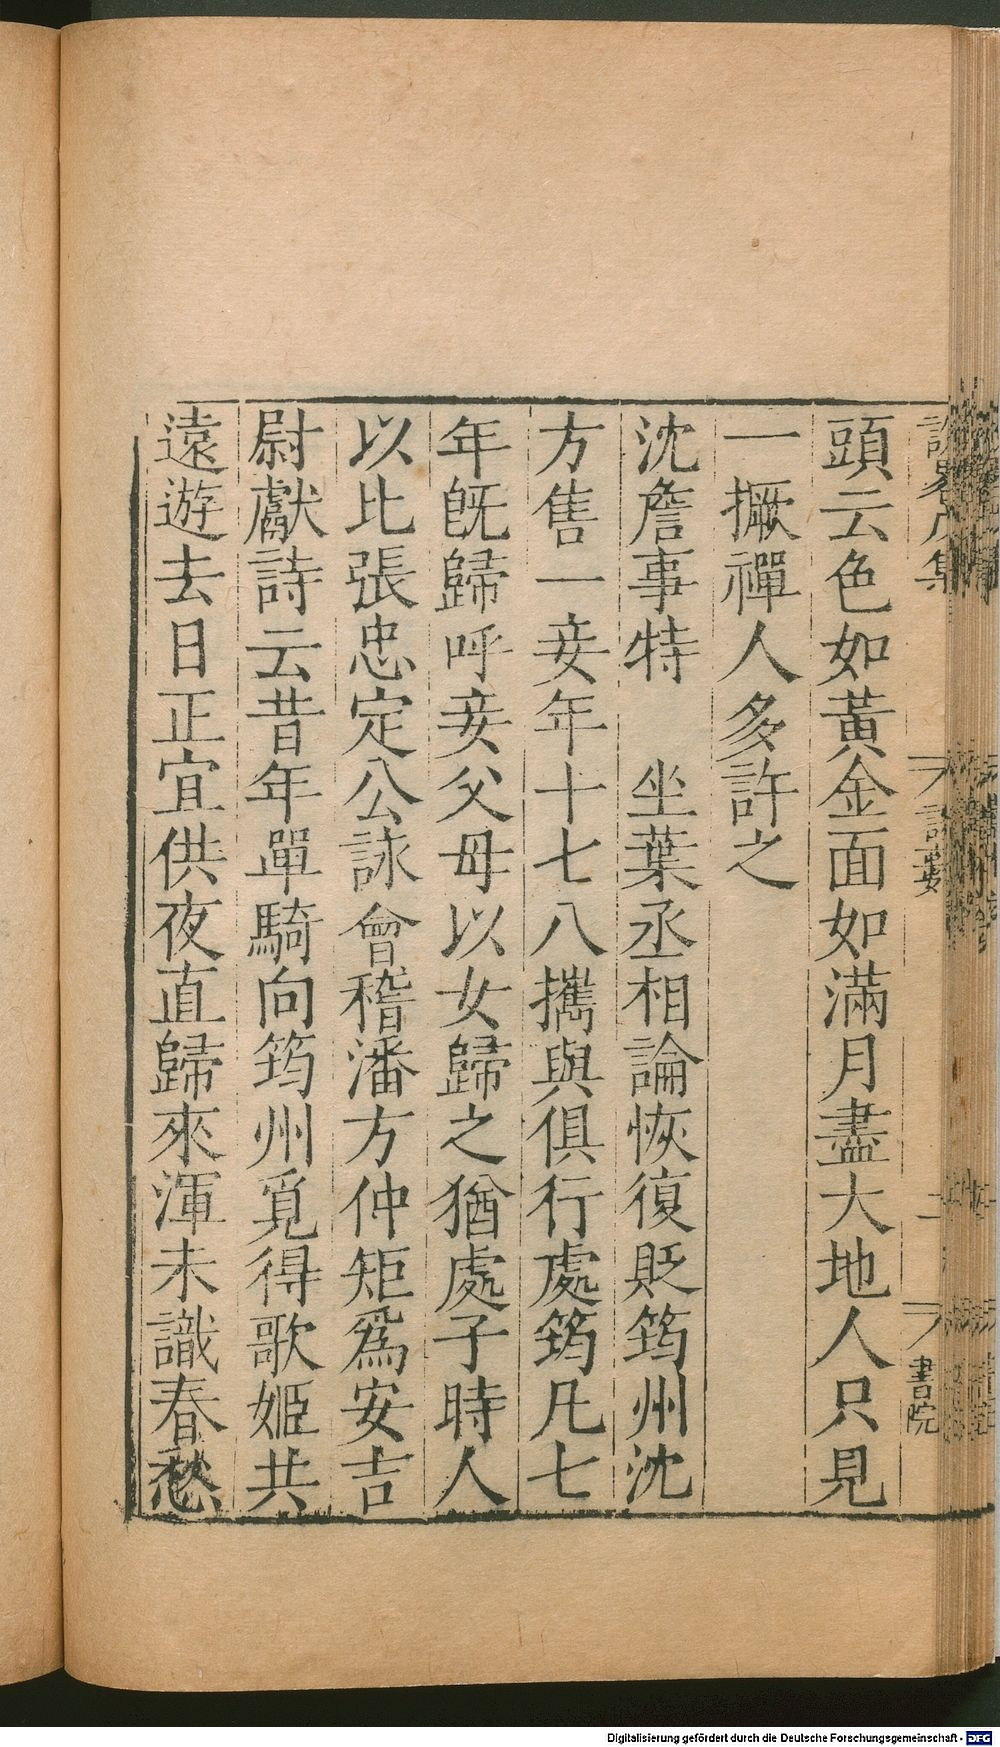 頭云色如黃金面如滿月盡大地人只見
一撅禪人多許之
沈詹事特　坐葉丞相論恢復貶筠州沈
方售一妾年十七八攜與俱行處筠凡七
年旣歸呼妾父母以女歸之猶處子時人
以比張忠定公詠會稽潘方仲矩爲安吉
尉獻詩云昔年單騎向筠州覓得歌姬共
遠遊去日正宜供夜直歸來渾未識春愁
書院
Digitalisierung gefördert durch die Deutsche Forschungsgemeinschaft - DFG